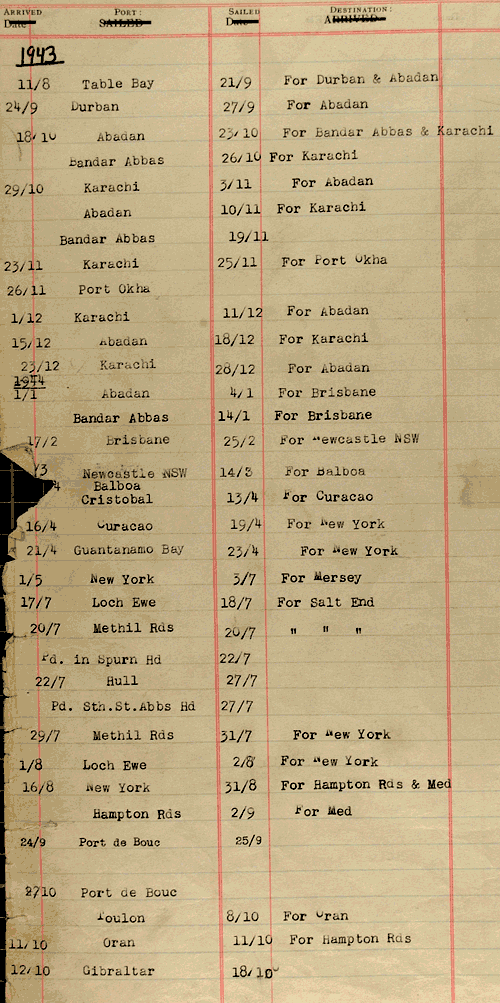 ARRIVED PORT: SAILED DESTINATION:
Date SAILED Date ARRIVED
1943
11/8 Table Bay 21/9 For Durban & Abadan
24/9 Durban 27/9 For Abadan
18/10 Abadan 23/10 For Bandar Abbas & Karachi
Bandar Abbas 26/10 For Karachi
29/10 Karachi 3/11 For Abadan
Abadan 10/11 For Karachi
Bandar Abbas 19/11
23/11 Karachi 25/11 For Port Okha
26/11 Port Okha
1/12 Karachi 11/12 For Abadan
15/12 Abadan 18/12 For Karachi
23/12 Karachi 28/12 For Abadan
1944
1/1 Abadan 4/1 For Brisbane
Bandar Abbas 14/1 For Brisbane
17/2 Brisbane 25/2 For Newcastle NSW
/3 Newcastle NSW 14/3 For Balboa
4 Balboa
Cristobal 13/4 For Curacao
16/4 Curacao 19/4 For New York
21/4 Guantanamo Bay 23/4 For New York
1/5 New York 3/7 For Mersey
17/7 Loch Ewe 18/7 For Salt End
20/7 Methil Rds 20/7 " " "
Pd. in Spurn Hd 22/7
22/7 Hull 27/7
Pd. Sth.St.Abbs Hd 27/7
29/7 Methil Rds 31/7 For New York
1/8 Loch Ewe 2/8 For New York
16/8 New York 31/8 For Hampton Rds & Med
Hampton Rds 2/9 For Med
24/9 Port de Bouc 25/9
2/10 Port de Bouc
Toulon 8/10 For Oran
11/10 Oran 11/10 For Hampton Rds
12/10 Gibraltar 18/10